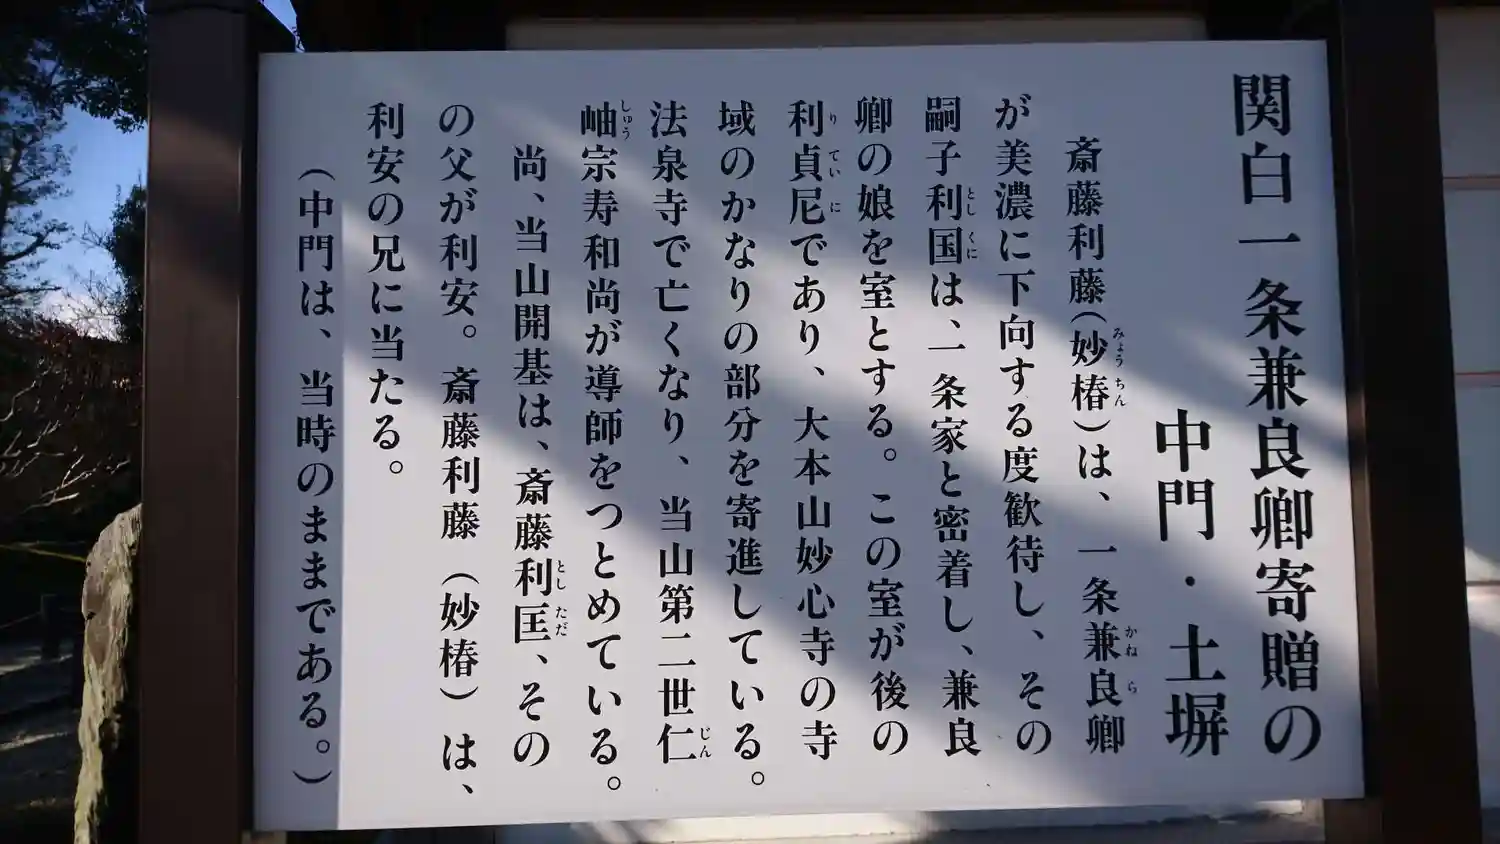 関白一条兼良卿寄贈の
中門・土塀
斎藤利藤（妙椿）は、一条兼良卿
みょう ちん
かね ら
が美濃に下向する度歓待し、その
嗣子利国は、一条家と密着し、兼良
とし くに
卿の娘を室とする。この室が後の
利貞尼であり、大本山妙心寺の寺
り てい に
域のかなりの部分を寄進している。
法泉寺で亡くなり、当山第二世仁
じん
岫宗寿和尚が導師をつとめている。
しゅう
尚、当山開基は、斎藤利匡、その
とし ただ
の父が利安。斎藤利藤（妙椿）は、
利安の兄に当たる。
（中門は、当時のままである。）